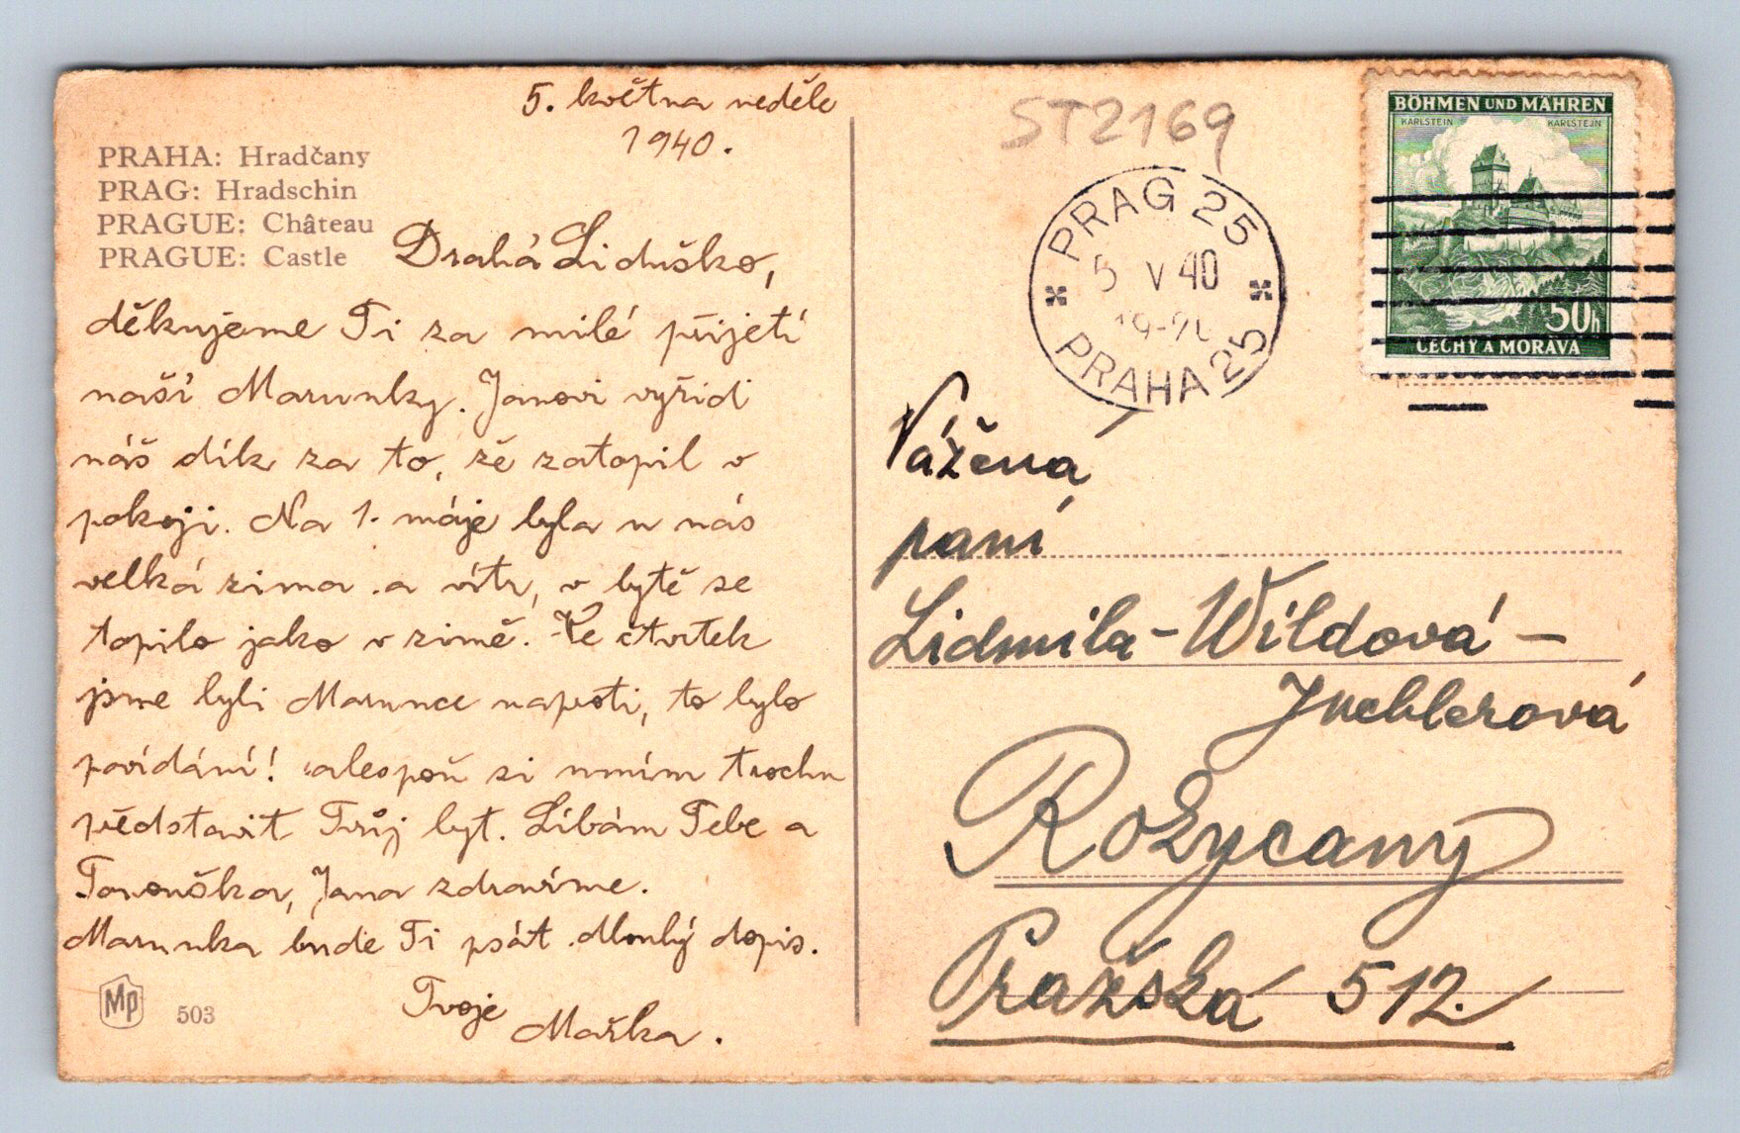 5. května neděle
1940.
PRAHA: Hradčany
PRAG: Hradschin
PRAGUE: Château
PRAGUE: Castle
Drahá Liduško,
děkujeme Ti za milé přijetí
naší Marunky. Janovi vyřid
náš dík za to, že zatopil v
pokoji. Na 1. máje byla u nás
velká zima a vítr, v bytě se
topilo jako v zimě. Ve čtvrtek
jsme byli Marunce naproti, to bylo
povídání! alespoň si umím trochu
představit Tvůj byt. Líbám Tebe a
Jana zdravíme.
Marunka bude Ti psát dlouhý dopis.
Tvoje
Mařka.
MP 503
ST2169
PRAG 25
5 V 40
PRAHA 25
BÖHMEN UND MÄHREN
KARLSTEIN KARLSTEJN
50h
ČECHY A MORAVA
Vážená
paní
Lidmila-Wildová-
Rokycany
Pražská 512.